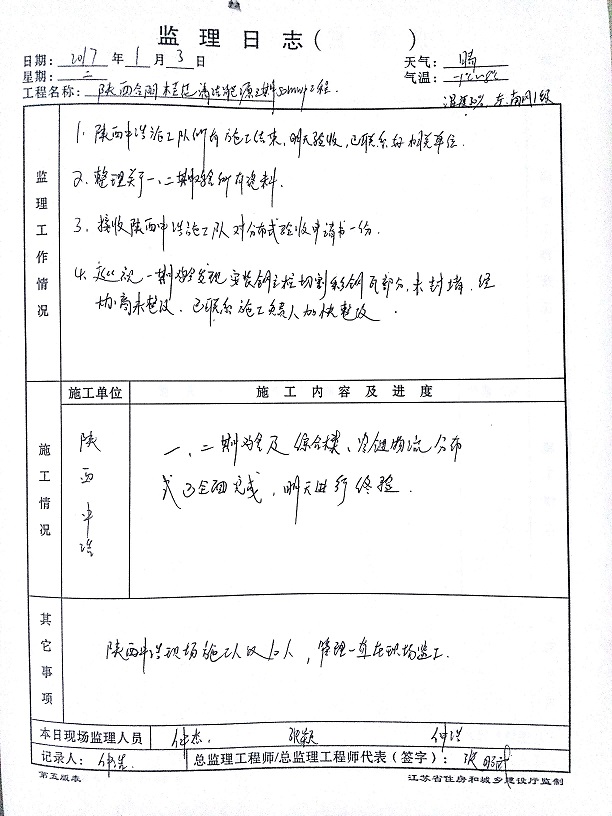 监 理 日 志 ( )
日期： 2017 年 1 月 3 日 天气： 晴
星期： 二 气温：
工程名称： 陕西 清洁能源 工程
东南风1级
监理工作情况
1. 陕西中浩施工队所有施工结束,明天验收,已联系好相关单位.
2. 整理关于一、二期 所有资料.
3. 接收陕西中浩施工队对分布式验收申请书一份.
4. 巡视一期 发现安装钢立柱切割彩钢瓦部分,未封堵.经
协商未整改.已联系施工负责人加快整改.
施工情况 施工单位 施 工 内 容 及 进 度
陕西中浩
一、二期 及综合楼、冷链物流分布
式已全面完成,明天进行终验.
其它事项
陕西中浩现场施工人 人,管理一直在现场监工.
本日现场监理人员 仲杰. 张颖 仲浩
记录人： 总监理工程师/总监理工程师代表（签字）： 张
第五版表 江苏省住房和城乡建设厅监制